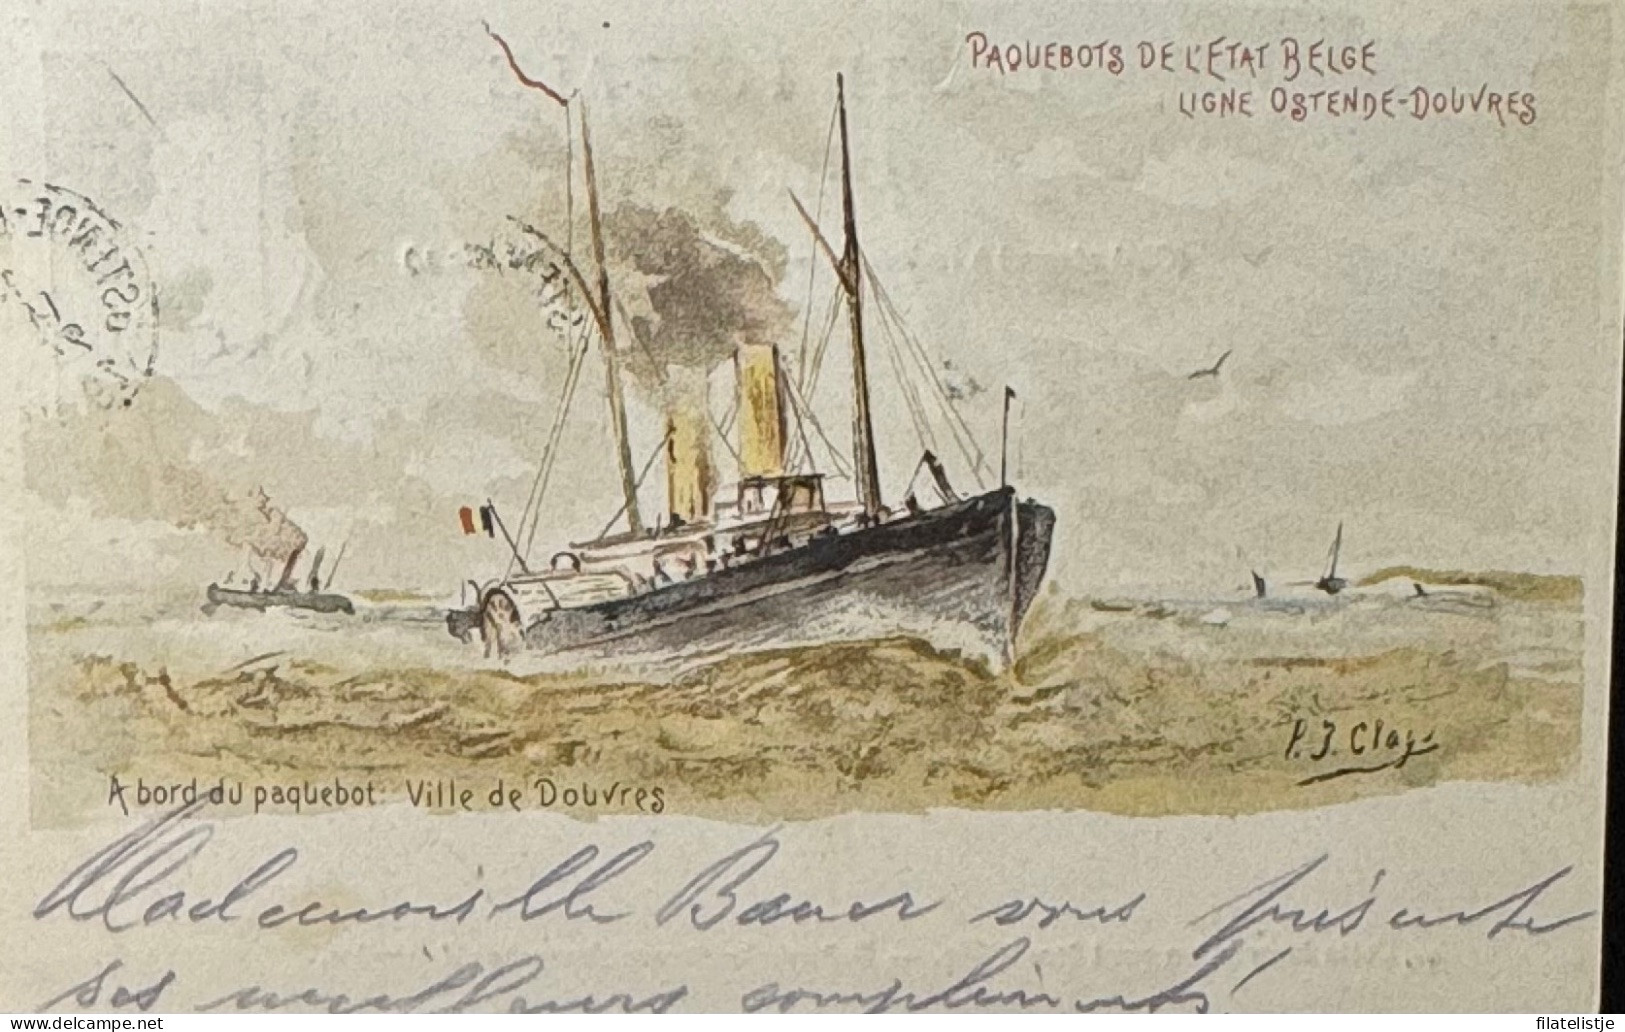 PAQUEBOTS DE L'ETAT BELGE
LIGNE OSTENDE-DOUVRES
OSTENDE
P. J. Clays
A bord du paquebot: Ville de Douvres
Mademoiselle Bauer vous présente
ses meilleurs compliments!
delcampe.net
filatelistje